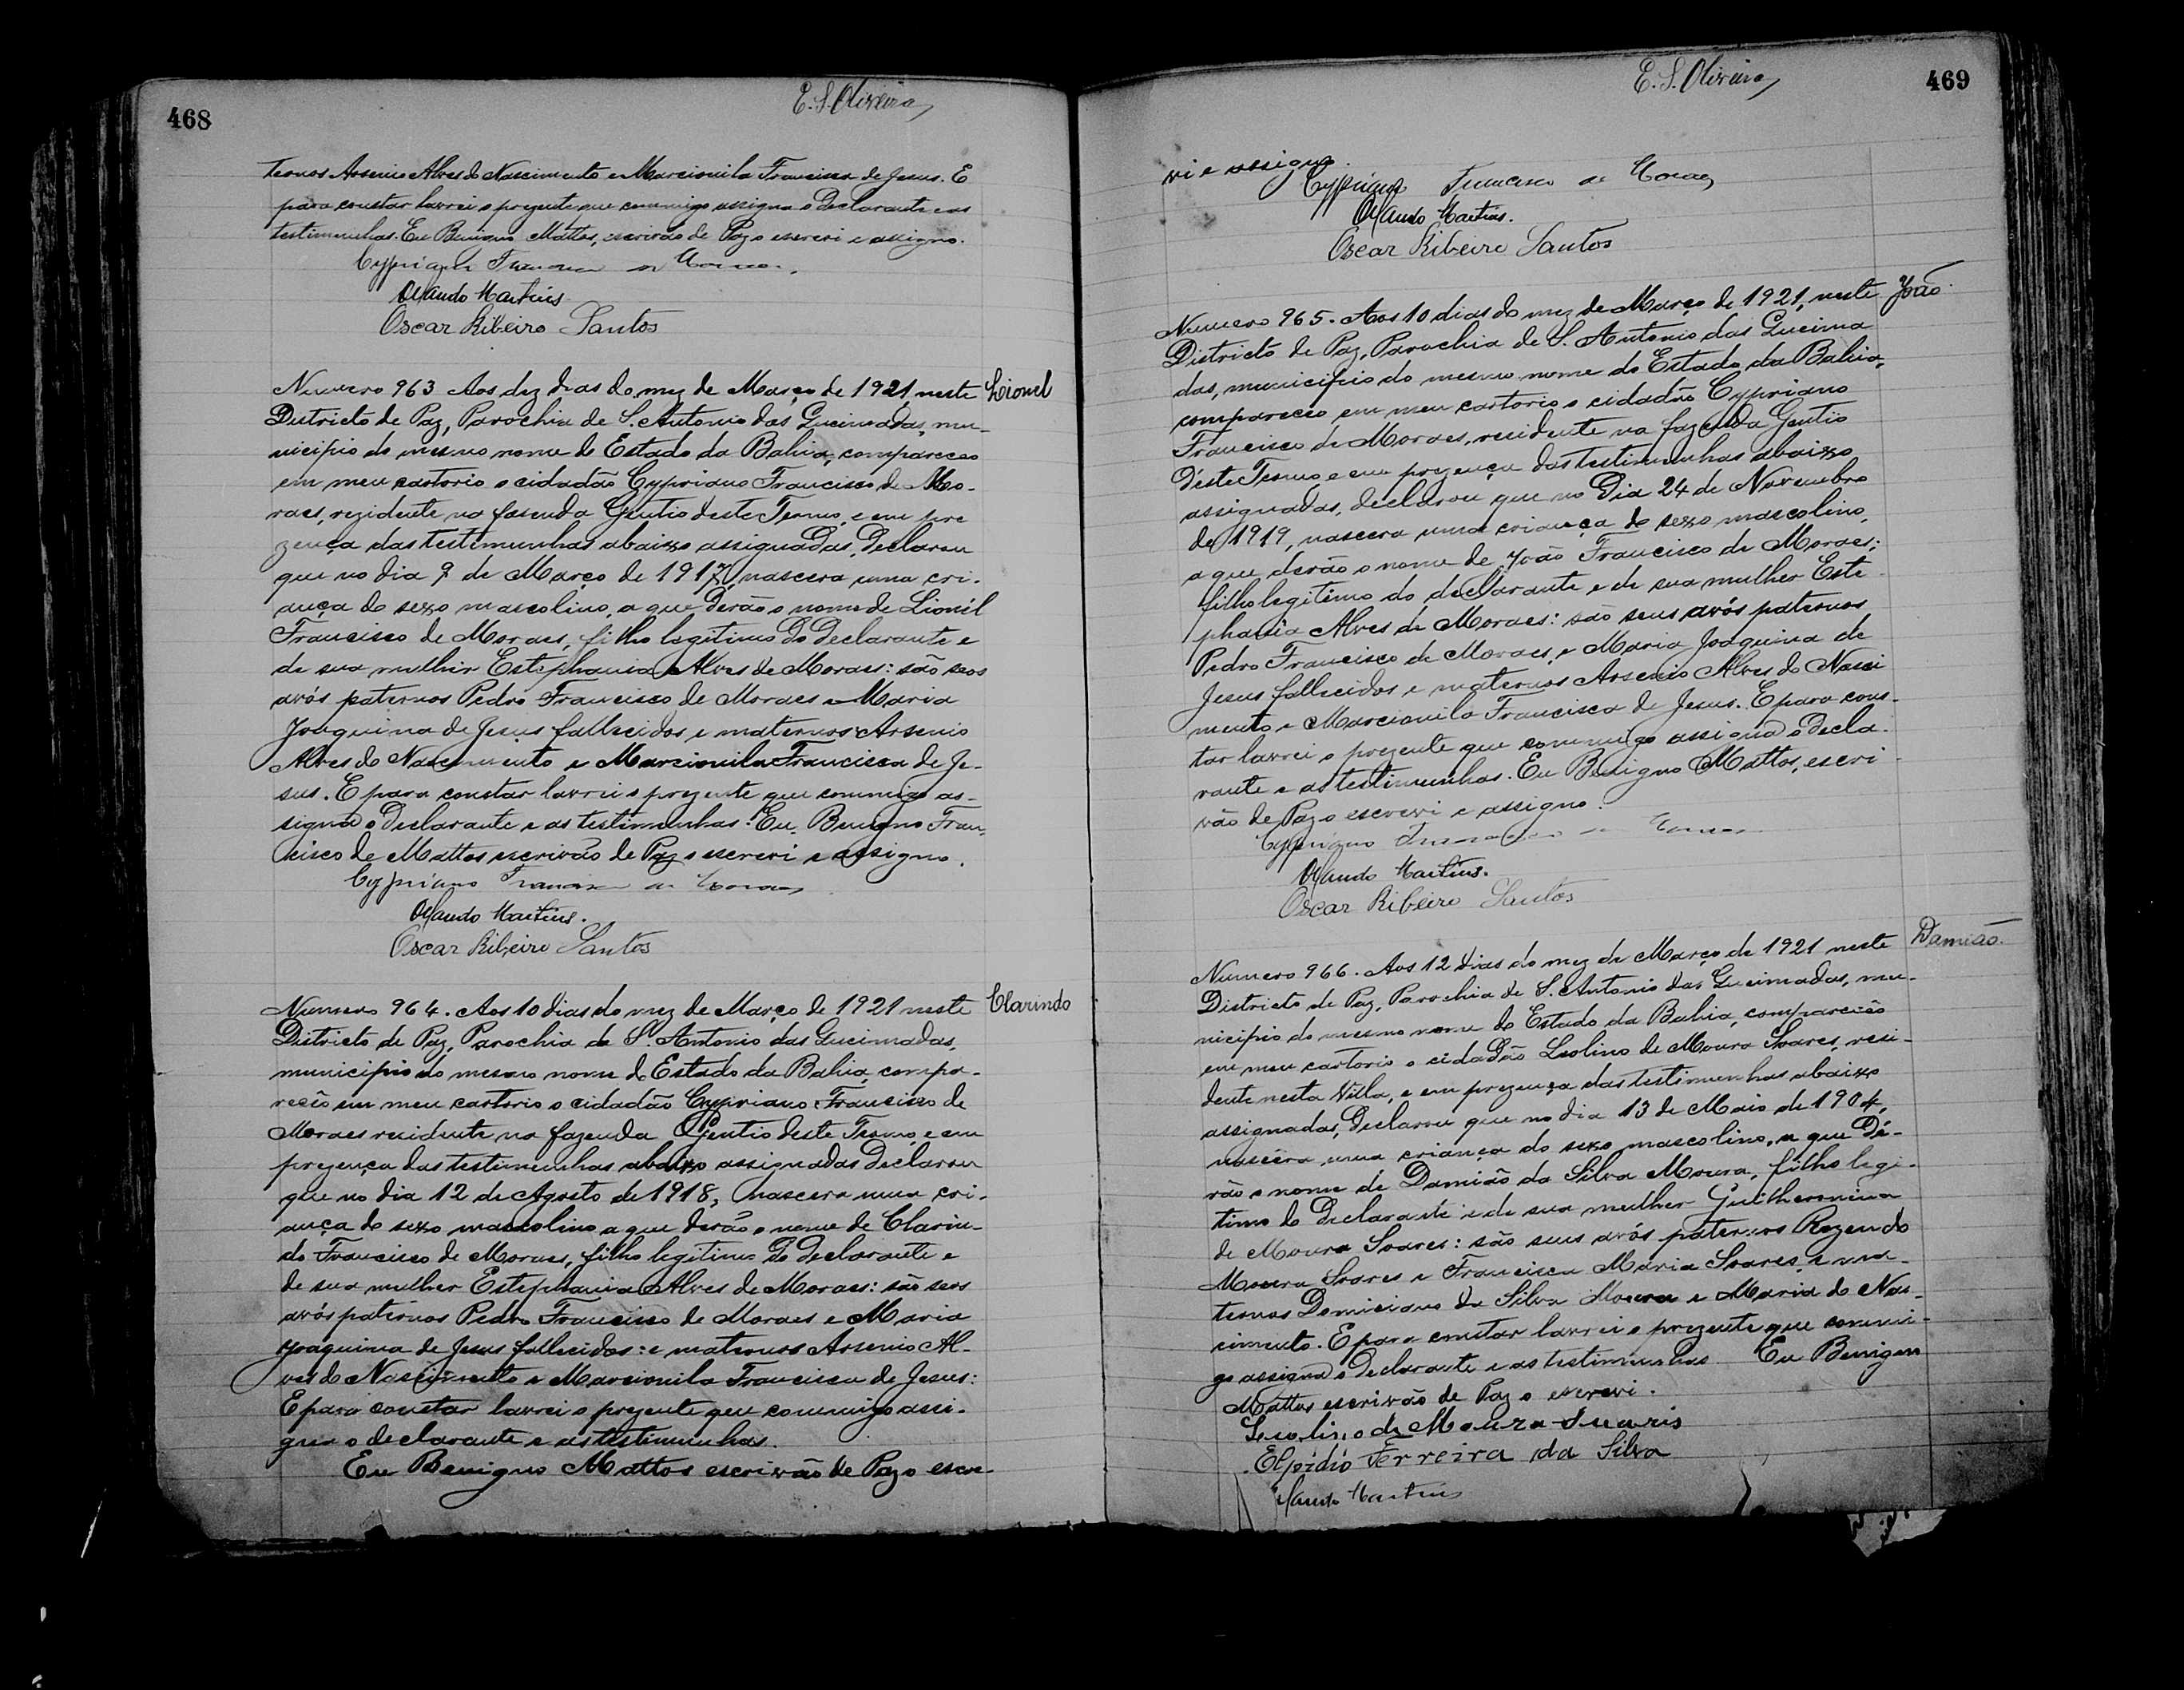 468
E. S. Oliveira
ternos Arsenio Alves do Nascimento e Marcionila Francisca de Jesus. E
para constar lavrei o prezente que commigo assigna o Declarante e as
testimunhas. Eu Benigno Mattos, escrivão de Paz o escrevi e assigno.
Cypriano Francisco de Moraes
Orlando Martins
Oscar Ribeiro Santos
Numero 963 Aos dez dias do mez de Março de 1921, neste
Lionil
Districto de Paz, Parochia de S. Antonio das Queimadas, mu-
nicipio do mesmo nome do Estado da Bahia, compareceo
em meu cartorio o cidadão Cypriano Francisco de Mo-
raes, rezidente na fasenda Gentio deste Termo, e em pre
zença das testimunhas abaixo assignadas, Declarou
que no dia 9 de Março de 1917, nascera uma cri-
ança do sexo mascolino, a que derão o nome de Lionil
Francisco de Moraes, filho legitimo do Declarante e
de sua mulher Estephania Alves de Moraes: são seos
avós paternos Pedro Francisco de Moraes e Maria
Joaquina de Jesus fallecidos, e maternos Arsenio
Alves do Nascimento e Marcionila Francisca de Je-
sus. E para constar lavrei o prezente que commigo as-
signa o Declarante e as testimunhas. Eu Benigno Fran-
cisco de Mattos escrivão de Paz o escrevi e assigno.
Cypriano Francisco de Moraes
Orlando Martins.
Oscar Ribeiro Santos
Numero 964. Aos 10 dias do mez de Março de 1921 neste
Clarindo
Districto de Paz, Parochia de S. Antonio das Queimadas,
municipio do mesmo nome do Estado da Bahia, compa-
recêo em meu cartorio o cidadão Cypriano Francisco de
Moraes residente na fazenda Gentio deste Termo, e em
prezença das testimunhas abaixo assignadas Declarou
que no dia 12 de Agosto de 1918, nascera uma cri-
ança do sexo mascolino a que derão o nome de Clarin-
do Francisco de Moraes, filho legitimo do Declarante e
de sua mulher Estephania Alves de Moraes: são seos
avós paternos Pedro Francisco de Moraes e Maria
Joaquina de Jesus fallecidos: e maternos Arsenio Al-
ves do Nascimento e Marcionila Francisca de Jesus:
E para constar lavrei o prezente que commigo assi-
gna o declarante e as testimunhas.
Eu Benigno Mattos escrivão de Paz o escre-
E. S. Oliveira
469
vi e assigno.
Cypriano Francisco de Moraes
Orlando Martins.
Oscar Ribeiro Santos
Numero 965. Aos 10 dias do mez de Março de 1921, neste
João
Districto de Paz, Parochia de S. Antonio das Queima
das, municipio do mesmo nome do Estado da Bahia,
compareceo em meu cartorio o cidadão Cypriano
Francisco de Moraes, residente na fazenda Gentio
déste Termo, e em prezença das testimunhas abaixo
assignadas, declarou que no Dia 24 de Novembro
de 1919, nascera uma criança do sexo mascolino,
a que derão o nome de João Francisco de Moraes;
filho legitimo do declarante e de sua mulher Este-
phania Alves de Moraes: são seus avós paternos
Pedro Francisco de Moraes, e Maria Joaquina de
Jesus fallecidos e maternos Arsenio Alves do Nasci
mento e Marcionila Francisca de Jesus. E para cons-
tar lavrei o prezente que commigo assigna o decla-
rante e as testimunhas. Eu Benigno Mattos, escri-
vão de Paz o escrevi e assigno.
Cypriano Francisco de Moraes
Orlando Martins.
Oscar Ribeiro Santos
Numero 966. Aos 12 dias do mez de Março de 1921 neste
Damião.
Districto de Paz, Parochia de S. Antonio das Queimadas, mu-
nicipio do mesmo nome do Estado da Bahia, comparecêo
em meu cartorio o cidadão Leolino de Moura Soares, resi-
dente nesta Villa, e em prezença das testimunhas abaixo
assignadas, Declarou que no dia 13 de Maio de 1904,
nascêra uma criança do sexo mascolino, a que De-
rão o nome de Damião da Silva Moura, filho legi-
timo do Declarante e de sua mulher Guilhermina
de Moura Soares: são seus avós paternos Rozendo
Moura Soares e Francisca Maria Soares, e ma-
ternos Domiciano da Silva Moura e Maria do Nas-
cimento. E para constar lavrei o prezente que commi-
go assigna o Declarante e as testimunhas Eu Benigno
Mattos escrivão de Paz o escrevi.
Leolino de Moura Suaris
Elpidio Ferreira da Silva
Orlando Martins